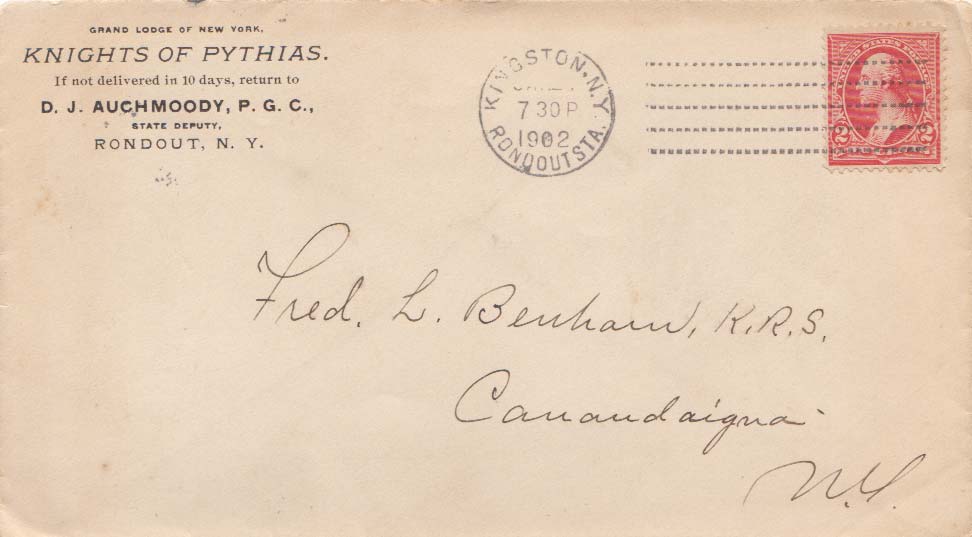 GRAND LODGE OF NEW YORK,
KNIGHTS OF PYTHIAS.
If not delivered in 10 days, return to
D. J. AUCHMOODY, P. G. C.,
STATE DEPUTY,
RONDOUT, N. Y.
KINGSTON, N.Y.
7 30 P
1902
RONDOUT STA.
UNITED STATES POSTAGE
2 2
Fred. L. Benham, K.R.S.
Canandaigua
N.Y.